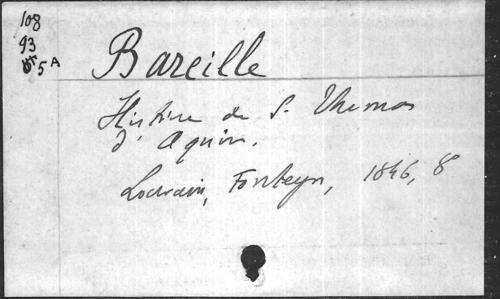 108
93
5 A
Bareille
Histoire de S. Thomas
d'Aquin.
Louvain, Fonteyn, 1846, 8°